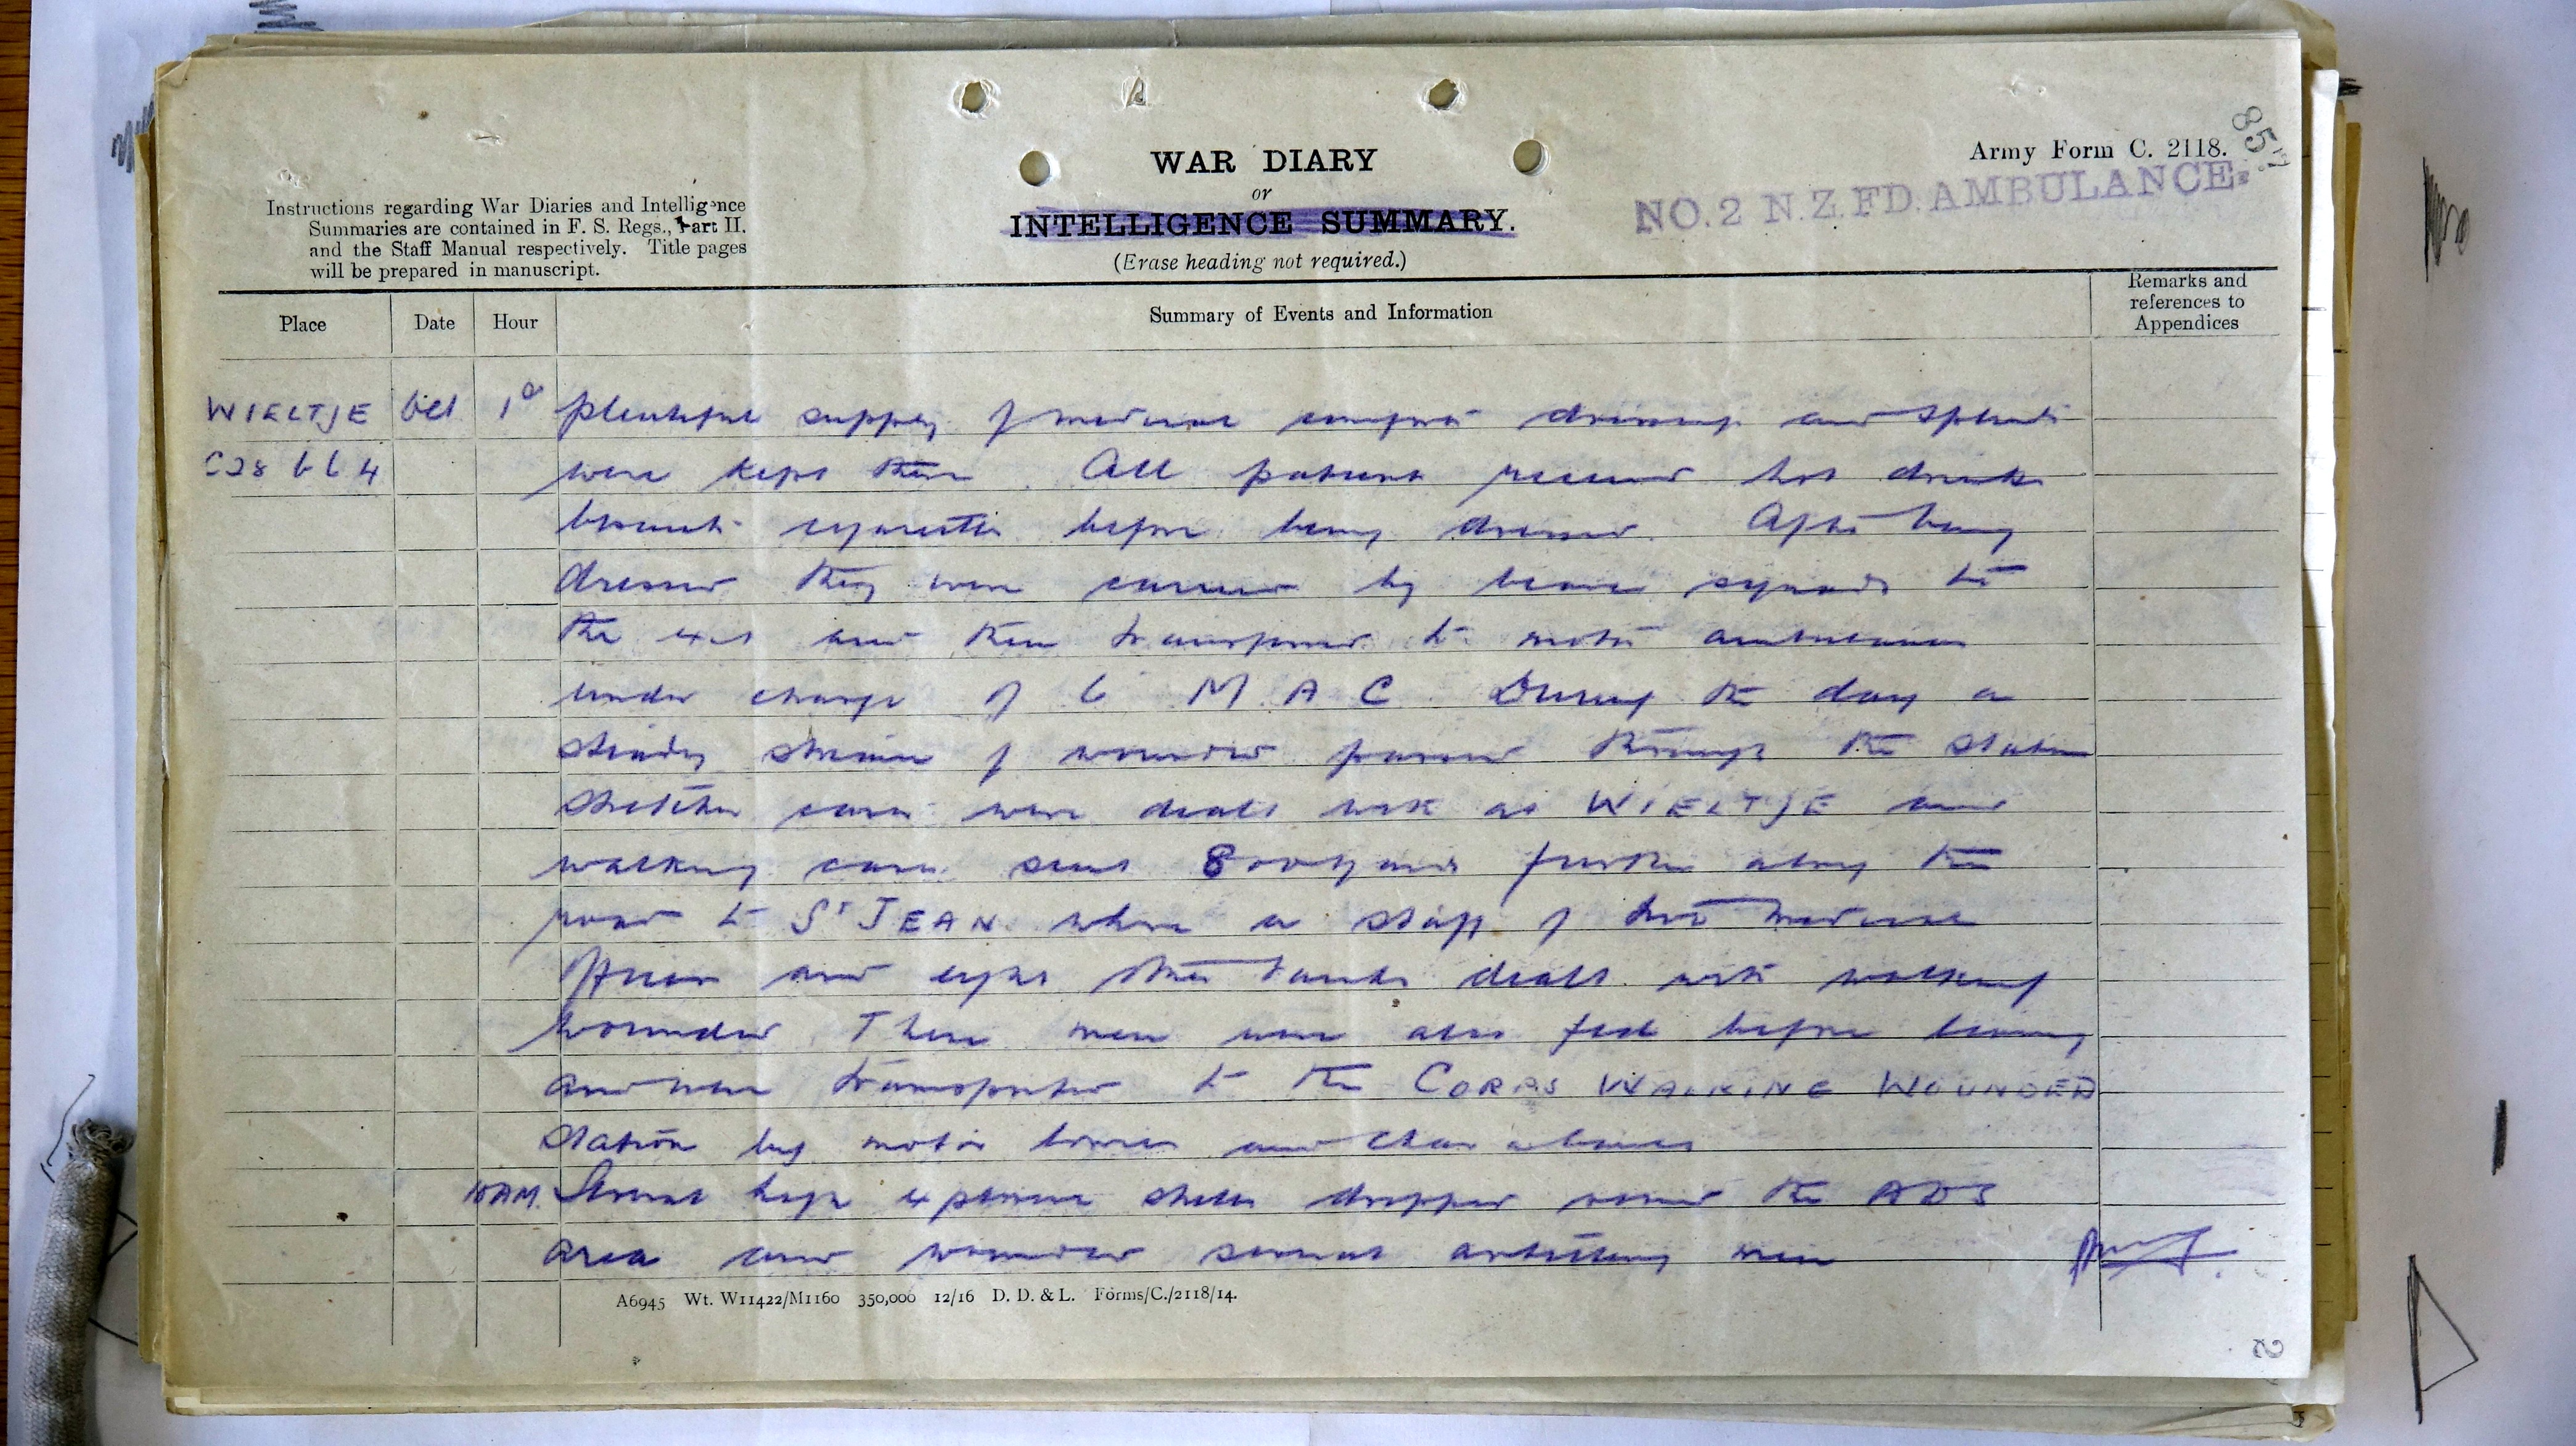 857
Army Form C. 2118.
WAR DIARY
or
INTELLIGENCE SUMMARY.
(Erase heading not required.)
NO. 2 N.Z. FD. AMBULANCE.
Instructions regarding War Diaries and Intelligence
Summaries are contained in F. S. Regs., Part II.
and the Staff Manual respectively. Title pages
will be prepared in manuscript.
Place Date Hour Summary of Events and Information Remarks and references to Appendices
WIELTJE Oct plentiful supply of medical comforts dressings and splints
C28 b 6 4 were kept there. All patients received hot drinks
biscuits cigarettes before being dressed. After being
dressed they were carried by bearer squads to
the exit and then transferred to motor ambulances
under charge of 6 M A C During the day a
steady stream of wounded passed through the station
stretcher cases were dealt with at WIELTJE and
walking cases sent 800 yards further along the
road to St JEAN where a staff of two medical
officers and eight other ranks dealt with walking
wounded These men were also fed before leaving
and were transported to the CORPS WALKING WOUNDED
station by motor lorries and char a bancs
10 AM. Several high explosive shells dropped round the ADS
area and wounded several artillery men
A6945 Wt. W11422/M1160 350,000 12/16 D. D. & L. Forms/C./2118/14.
2